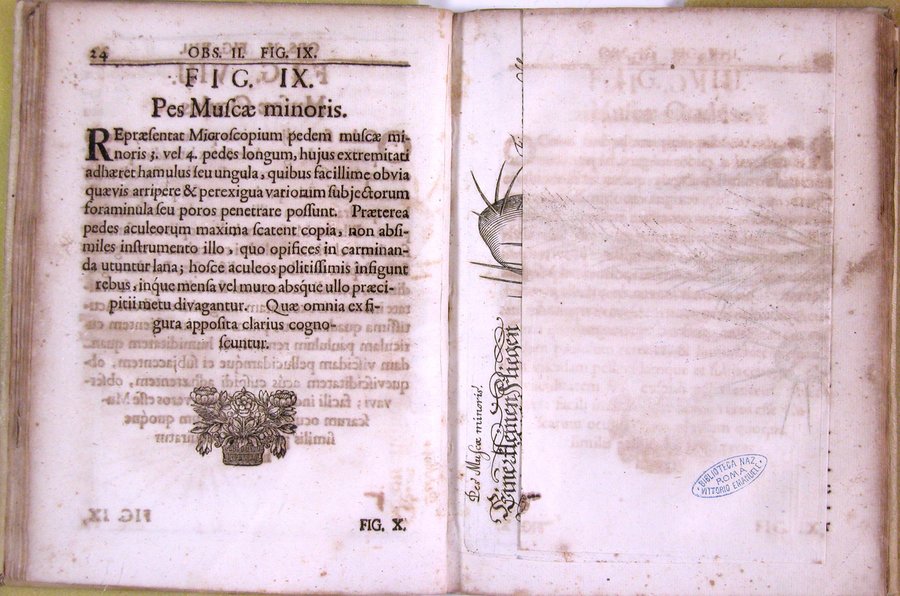 24 OBS. II. FIG. IX.
FIG. IX.
Pes Muſcæ minoris.
REpræſentat Microſcopium pedem muſcæ mi-
noris 3. vel 4. pedes longum, hujus extremitati
adhæret hamulus ſeu ungula, quibus facillime obvia
quævis arripere & perexigua variorum ſubjectorum
foraminula ſeu poros penetrare poſſunt. Præterea
pedes aculeorum maxima ſcatent copia, non abſi-
miles inſtrumento illo, quo opifices in carminan-
da utuntur lana; hoſce aculeos politiſſimis inſigunt
rebus, inque menſa vel muro absque ullo præci-
pitii metu divagantur. Quæ omnia ex fi-
gura appoſita clarius cogno-
ſcuntur.
FIG. X.
Pes Muſcæ minoris.
Einer kleinen Fliegen
BIBLIOTECA NAZ.
ROMA
VITTORIO EMANUELE